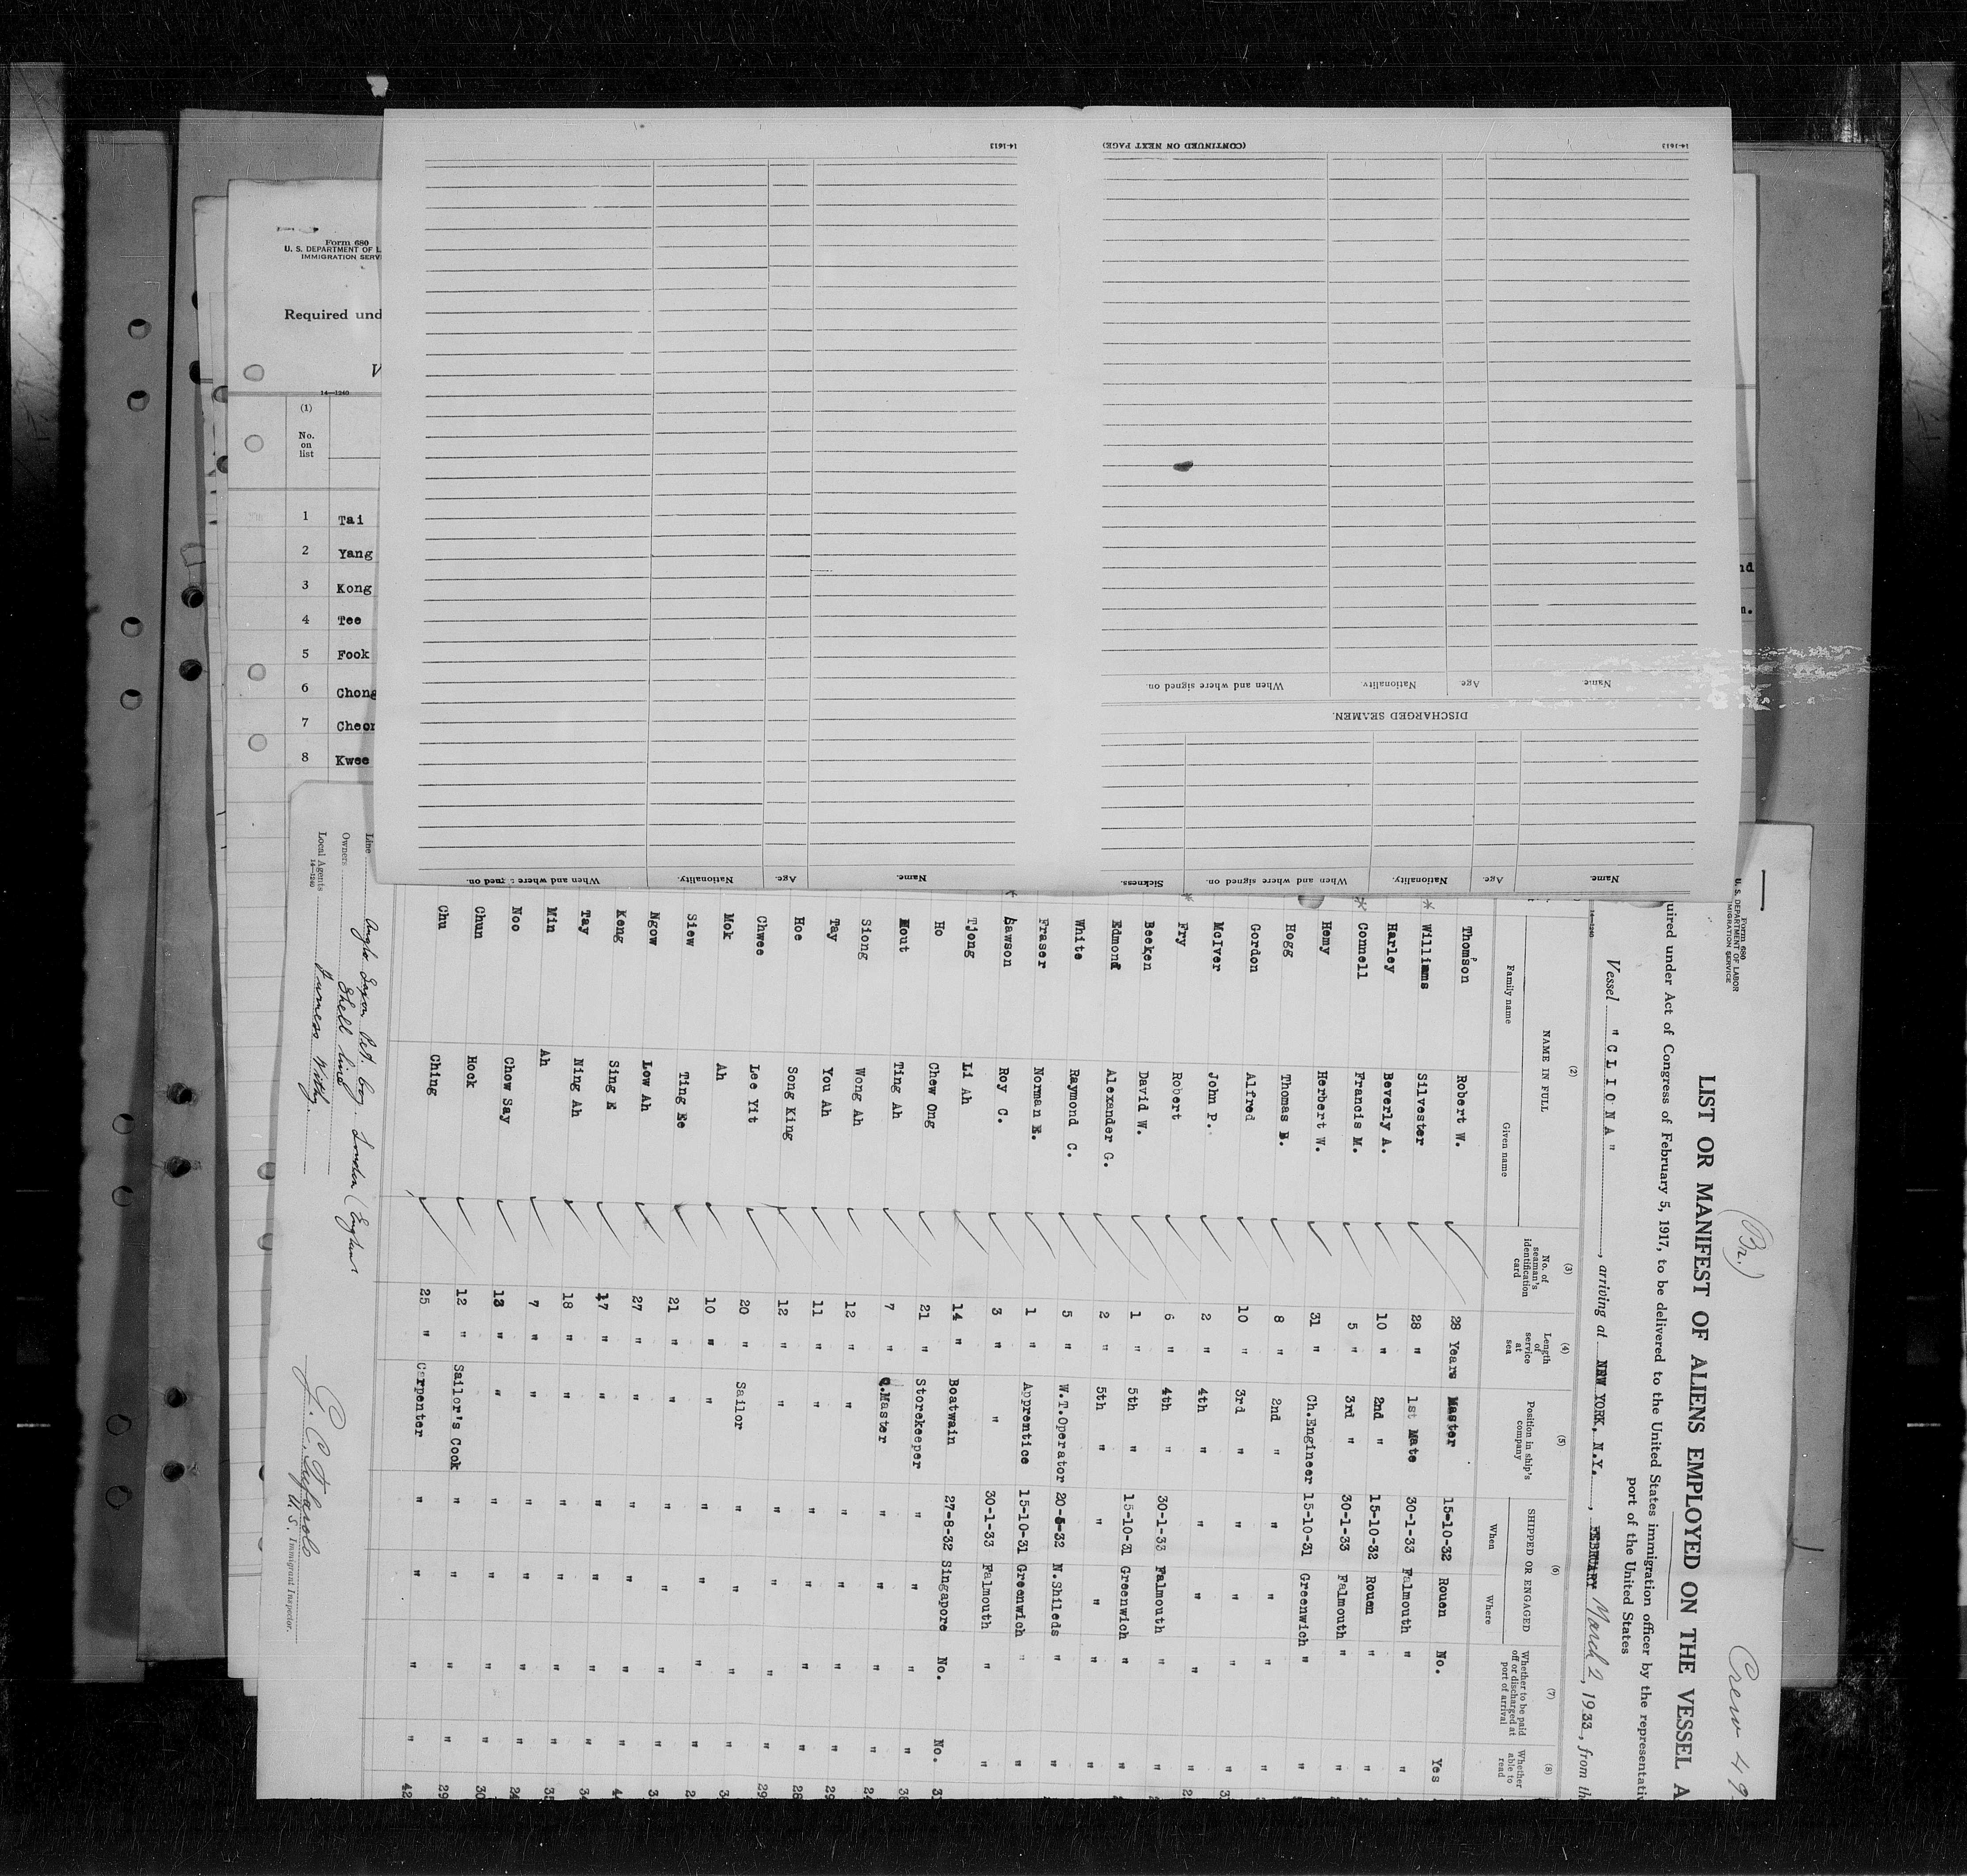 14-1613
(CONTINUED ON NEXT PAGE)
14-1613
Name. Age. Nationality. When and where signed on.
DISCHARGED SEAMEN.
Name. Age. Nationality. When and where signed on. Sickness.
Name. Age. Nationality. When and where signed on.
Form 680
U. S. DEPARTMENT OF L
IMMIGRATION SERVI
Required und
V
14—1240
(1)
No. on list
1 Tai
2 Yang
3 Kong
4 Tee
5 Fook
6 Chong
7 Cheon
8 Kwee
nd
n.
Form 680
U. S. DEPARTMENT OF LABOR
MIGRATION SERVICE
(Br.)
Crew 49
LIST OR MANIFEST OF ALIENS EMPLOYED ON THE VESSEL A
uired under Act of Congress of February 5, 1917, to be delivered to the United States immigration officer by the representativ
port of the United States
Vessel "CLIONA", arriving at NEW YORK, N.Y., FEBRUARY March 2, 1933, from th
14—1240
(2) (3) (4) (5) (6) (7) (8)
NAME IN FULL
Family name Given name
No. of seaman's identification card
Length of service at sea
Position in ship's company
SHIPPED OR ENGAGED
When Where
Whether to be paid off or discharged at port of arrival
Whether able to read
Thomson Robert W. 28 Years Master 15-10-32 Rouen No. Yes
* Williams Silvester 28 " 1st Mate 30-1-33 Falmouth " "
Harley Beverly A. 10 " 2nd " 15-10-32 Rouen " "
* Connell Francis M. 5 " 3rd " 30-1-33 Falmouth " "
Hemy Herbert W. 31 " Ch.Engineer 15-10-31 Greenwich " "
Hogg Thomas B. 8 " 2nd " " " " "
Gordon Alfred 10 " 3rd " " " " "
McIver John P. 2 " 4th " " " " "
* Fry Robert 6 " 4th " 30-1-33 Falmouth " "
Beeken David W. 1 " 5th " 15-10-31 Greenwich " "
Edmond Alexander G. 2 " 5th " " " " "
White Raymond C. 5 " W.T.Operator 20-5-32 N.Shileds " "
Fraser Norman E. 1 " Apprentice 15-10-31 Greenwich " "
* Lawson Roy C. 3 " " 30-1-33 Falmouth " "
Tjong Li Ah 14 " Boatwain 27-8-32 Singapore No. No.
Ho Chew Ong 21 " Storekeeper " " " "
Mout Ting Ah 7 " Q.Master " " " "
Siong Wong Ah 12 " " " " " "
Tay You Ah 11 " " " " " "
Hoe Song King 12 " " " " " "
Chwee Lee Yit 20 " Sailor " " " "
Mok Ah 10 " " " " " "
Siew Ting Ee 21 " " " " " "
Ngow Low Ah 27 " " " " " "
Keng Sing E 17 " " " " " "
Tay Ning Ah 18 " " " " " "
Min Ah 7 " " " " " "
Noo Chow Say 13 " " " " " "
Chun Hock 12 " Sailor's Cook " " " " 29
Chu Ching 25 " Carpenter " " " " 42
Line Anglo Saxon Pet. Coy. London (England
Owners Shell Line
Local Agents Furness Withy
14—1240
U. S. Immigrant Inspector.